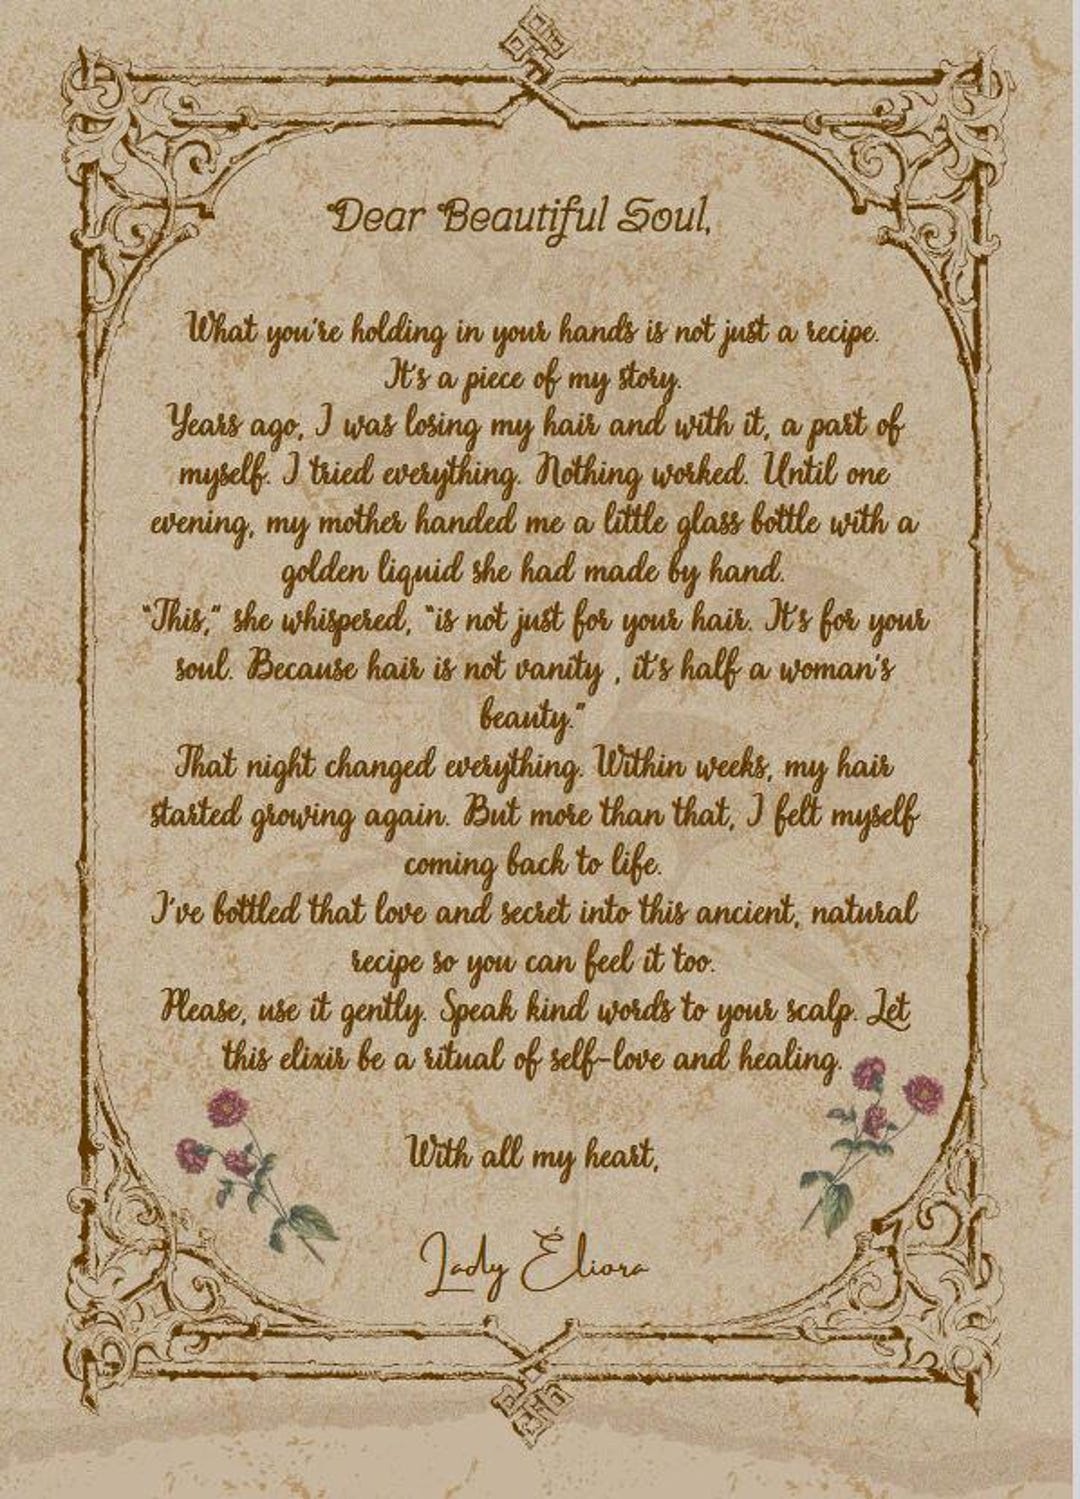 Dear Beautiful Soul,
What you're holding in your hands is not just a recipe.
It's a piece of my story.
Years ago, I was losing my hair and with it, a part of
myself. I tried everything. Nothing worked. Until one
evening, my mother handed me a little glass bottle with a
golden liquid she had made by hand.
"This," she whispered, "is not just for your hair. It's for your
soul. Because hair is not vanity , it's half a woman's
beauty."
That night changed everything. Within weeks, my hair
started growing again. But more than that, I felt myself
coming back to life.
I've bottled that love and secret into this ancient, natural
recipe so you can feel it too.
Please, use it gently. Speak kind words to your scalp. Let
this elixir be a ritual of self-love and healing.
With all my heart,
Lady Eliora